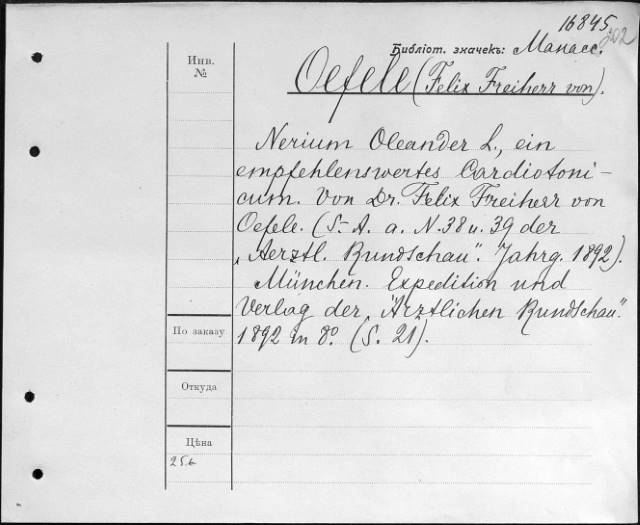 16845
202
Библіот. значекъ: Манасс.
Инв. №
Oefele (Felix Freiherr von).
Nerium Oleander L., ein
empfehlenswertes Cardiotoni-
cum. Von Dr. Felix Freiherr von
Oefele. (S.-A. a. N. 38 u. 39 der
„Aerztl. Rundschau". Jahrg. 1892).
München. Expedition und
Verlag der „Ärztlichen Rundschau."
1892 in 8º. (S. 21).
По заказу
Откуда
Цѣна